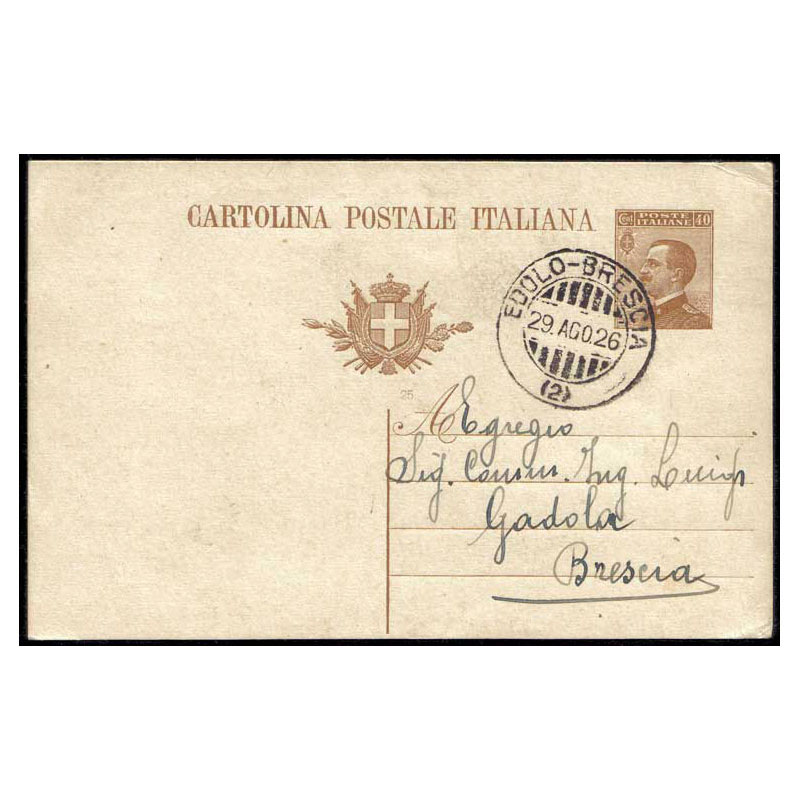 CARTOLINA POSTALE ITALIANA
Cent POSTE ITALIANE 40
EDOLO-BRESCIA
29.AGO.26
(2)
25
A Egregio
Sig. Comm. Ing. Luigi
Gadola
Brescia